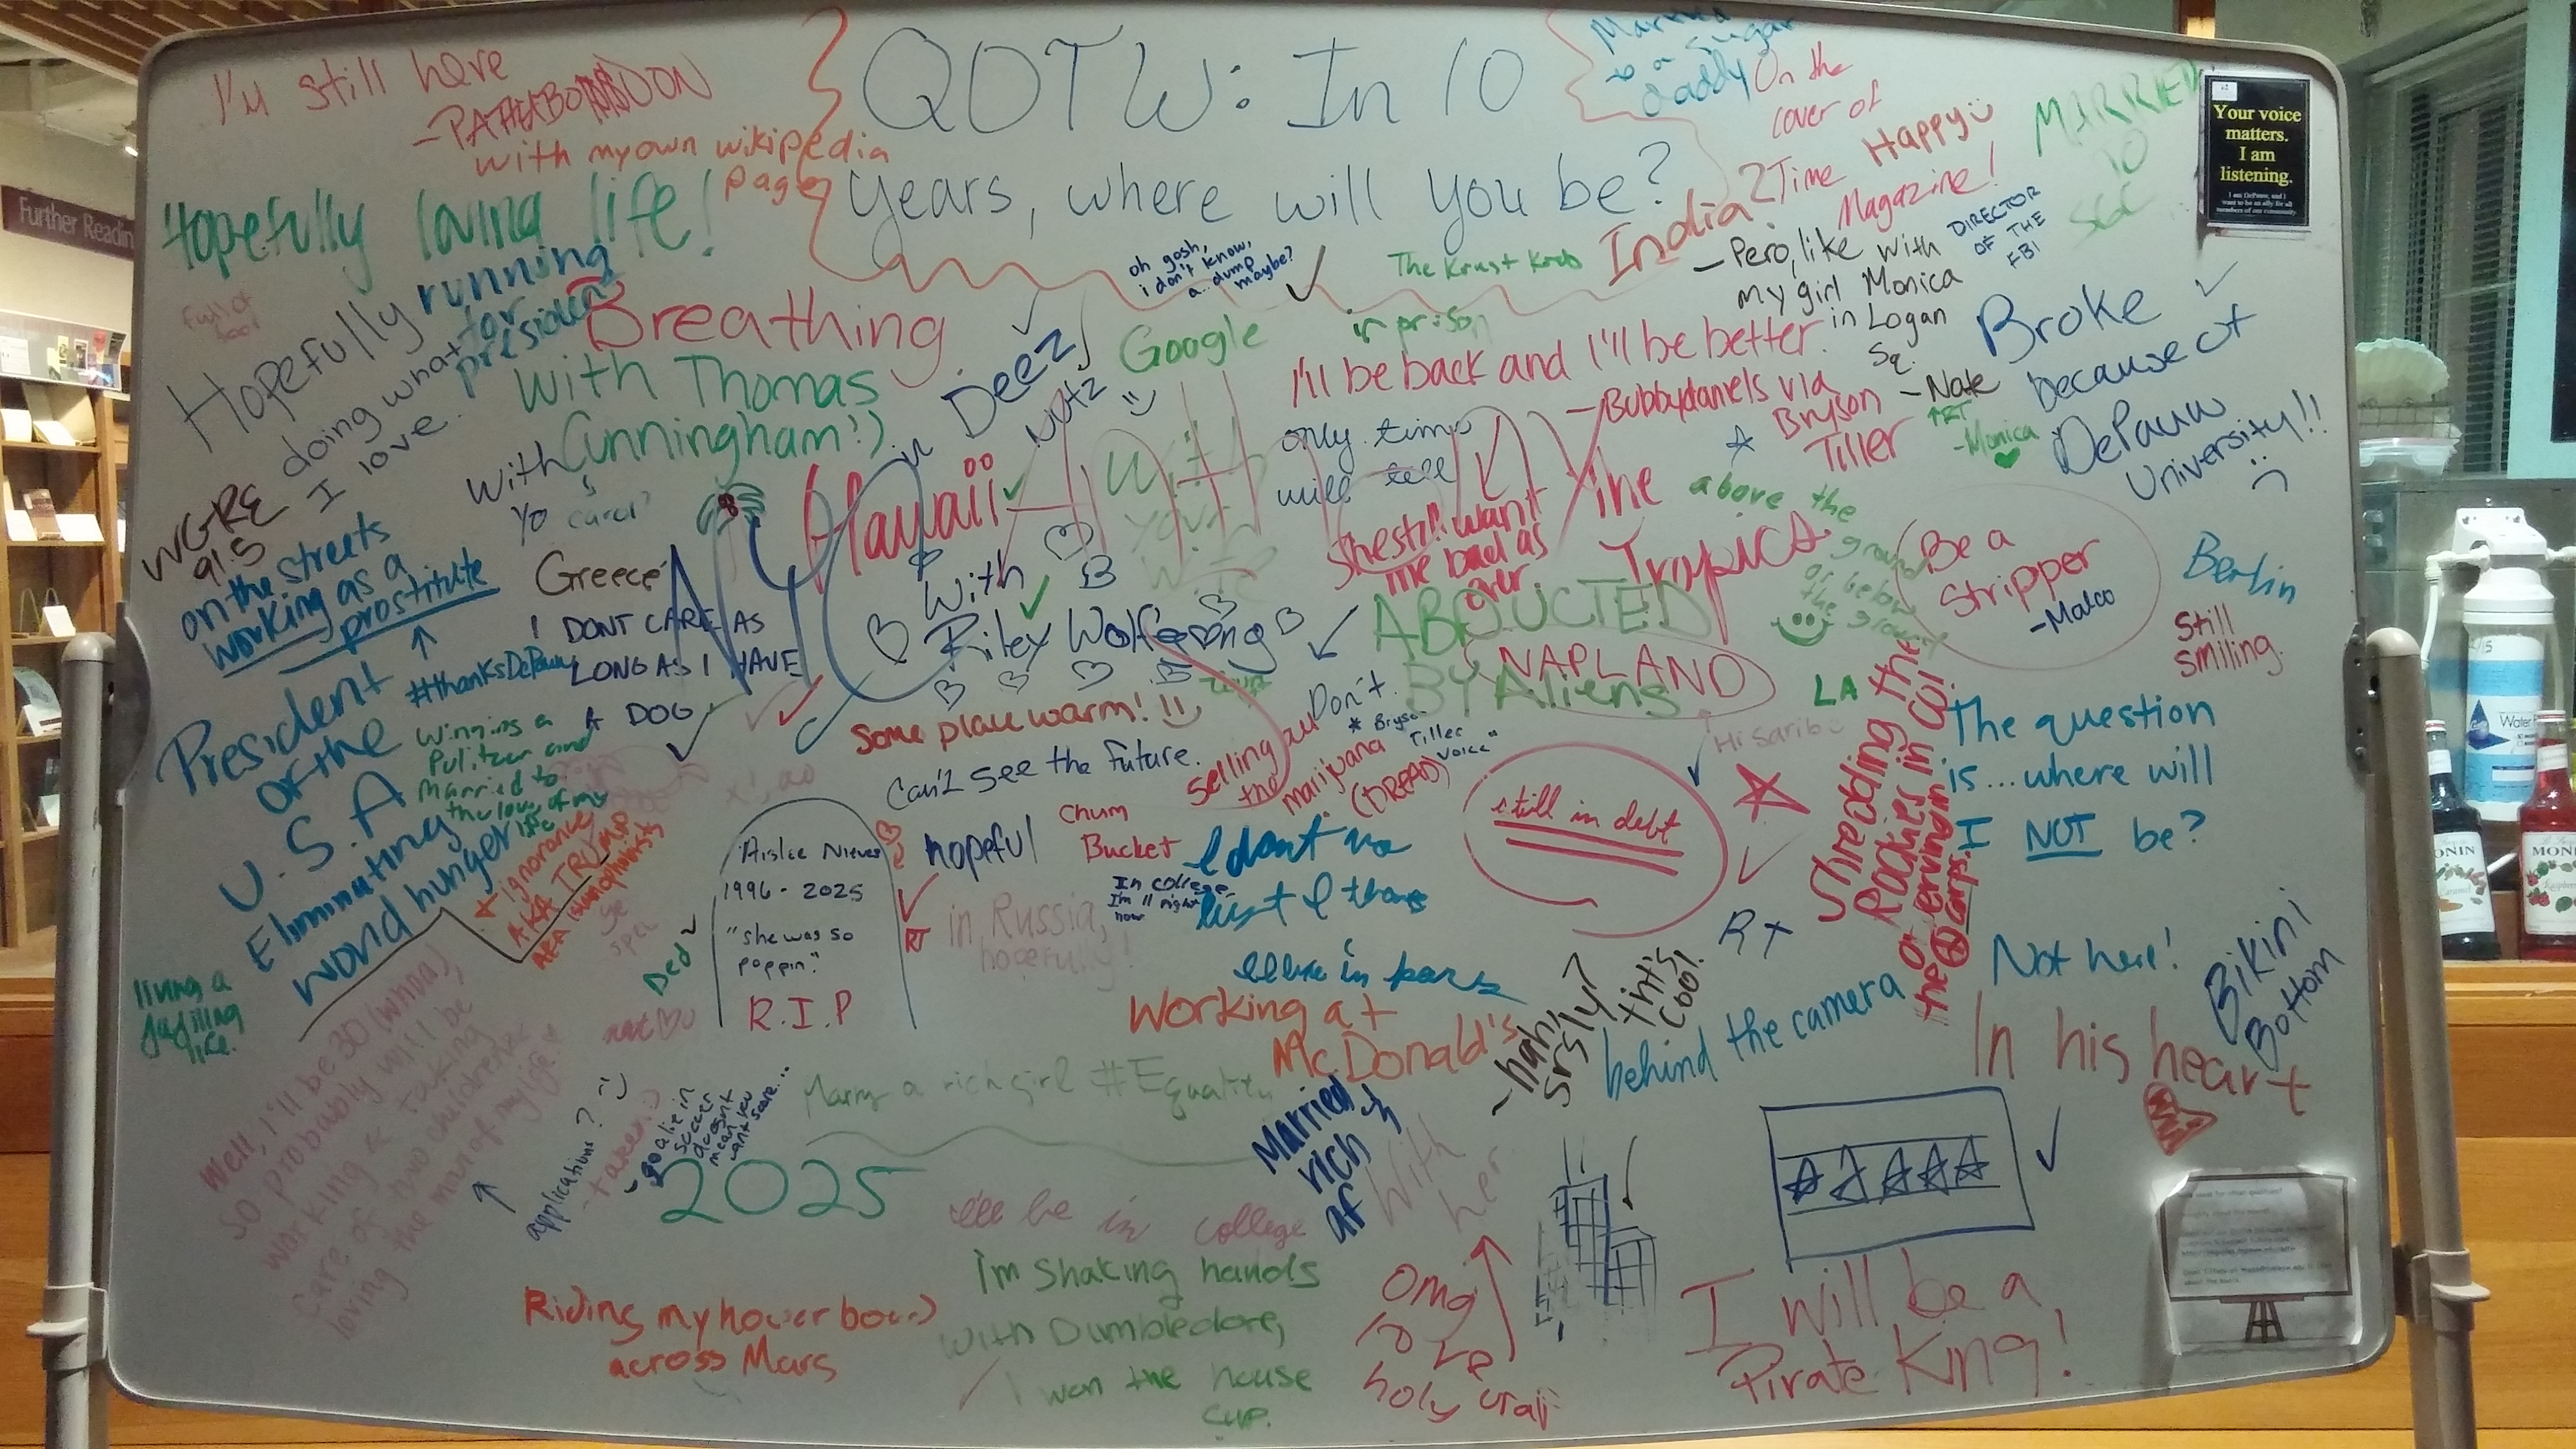 QOTW: In 10
years, where will you be?
I'm still here
with my own wikipedia
page
Hopefully loving life!
Hopefully running
for
president
Hopefully
doing what
I love.
Breathing
with Thomas
Cunningham :)
with
Yo
WGRE
91.5
on the streets
working as a
prostitute
#thanksDePauw
Greece
I DONT CARE AS
LONG AS I HAVE
A DOG
President
of the
U.S.A
winning a
Pulitzer and
married to
the love of my
life
Eliminating
world hunger
+ ignorance
AKA TRUMP
AKA islamophobists
living a
fulfilling
life.
Married
to a sugar
daddy
On the
cover of
Time
Magazine!
Happy
MARRIED
TO
India?
- Pero, like with
my girl Monica
in Logan
Sq.
- Nate
RT
-Monica
DIRECTOR
OF THE
FBI
Your voice
matters.
I am
listening.
oh gosh,
i don't know,
a.. dump
maybe?
The Krust Krab
in prison
Google
in Deez
Nutz
I'll be back and I'll be better.
- Bubbydaniels via
Bryson
Tiller
Broke
because of
DePauw
University!!
only time
will tell
Hawaii
NYC
with
your
wife
She still want
me bad as
ever
In the
Tropics
above the
ground
or below
the ground
Be a
Stripper
-Malco
Berlin
Still
smiling.
With
Riley Wolfe
ABDUCTED
BY Aliens
NAPLAND
LA
Some place warm!
Can't see the future.
Selling all
the
marijuana
(DREAD)
Don't
* Bryson
Tiller
voice"
still in debt
Shredding the
Rockies in Col.
or serving in
the Corps.
The question
is...where will
I NOT be?
Aislee Nieves
1996 - 2025
"she was so
poppin"
R.I.P
Ded
RT
hopeful
Chum
Bucket
In college
right
now
in Russia,
hopefully!
I dont no
but I
in
Rx
Not here!
Bikini
Bottom
Working at
McDonald's
- hah,
srsly?
that's
cool.
behind the camera
In his heart
Well, I'll be 30 (whoa),
so probably will be
working & taking
care of two children &
loving the man of my life
applications? :)
- taken :)
- goalie in
soccer
doesn't
mean you
can't score...
Marry a rich girl #Equality
2025
Married
rich
af
With
her.
I'll be in college
I'm shaking hands
with Dumbledore,
I won the house
cup.
Riding my hover board
across Mars
Omg
holy
I will be a
Pirate King!
Further Readin
Water
MONIN
MONI